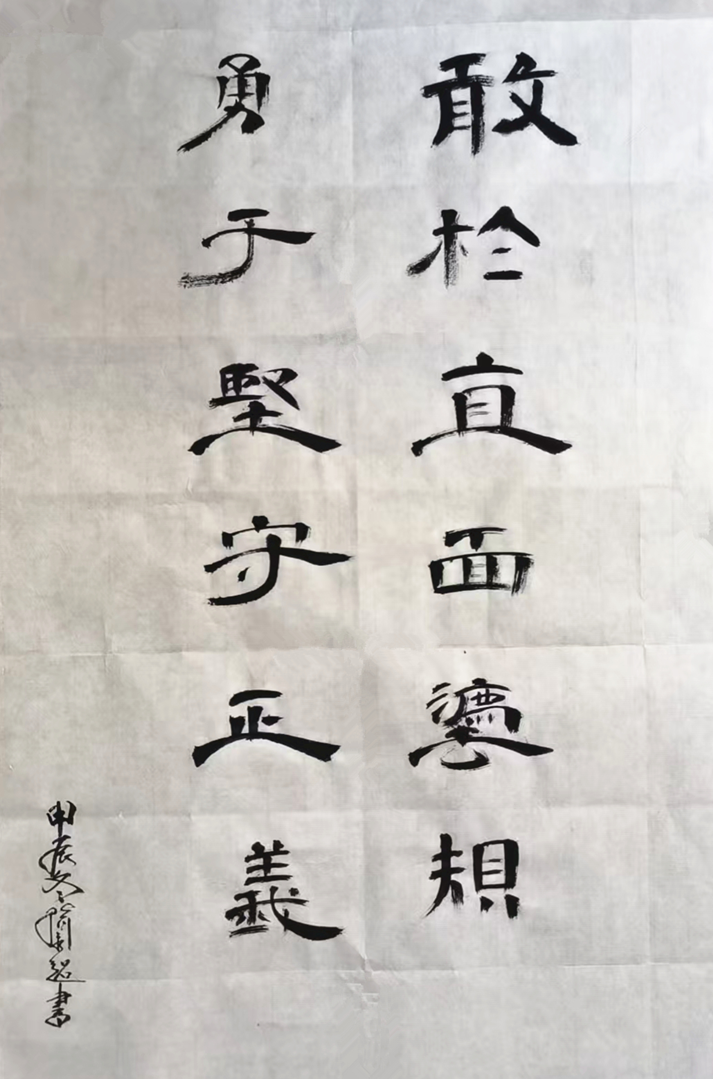 敢於直面規
勇于堅守正義
甲辰書